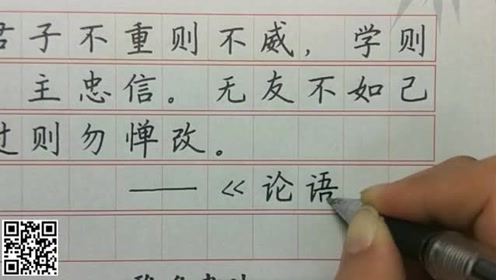 君子不重则不威，学则
主忠信。无友不如己
过则勿惮改。
——《论语